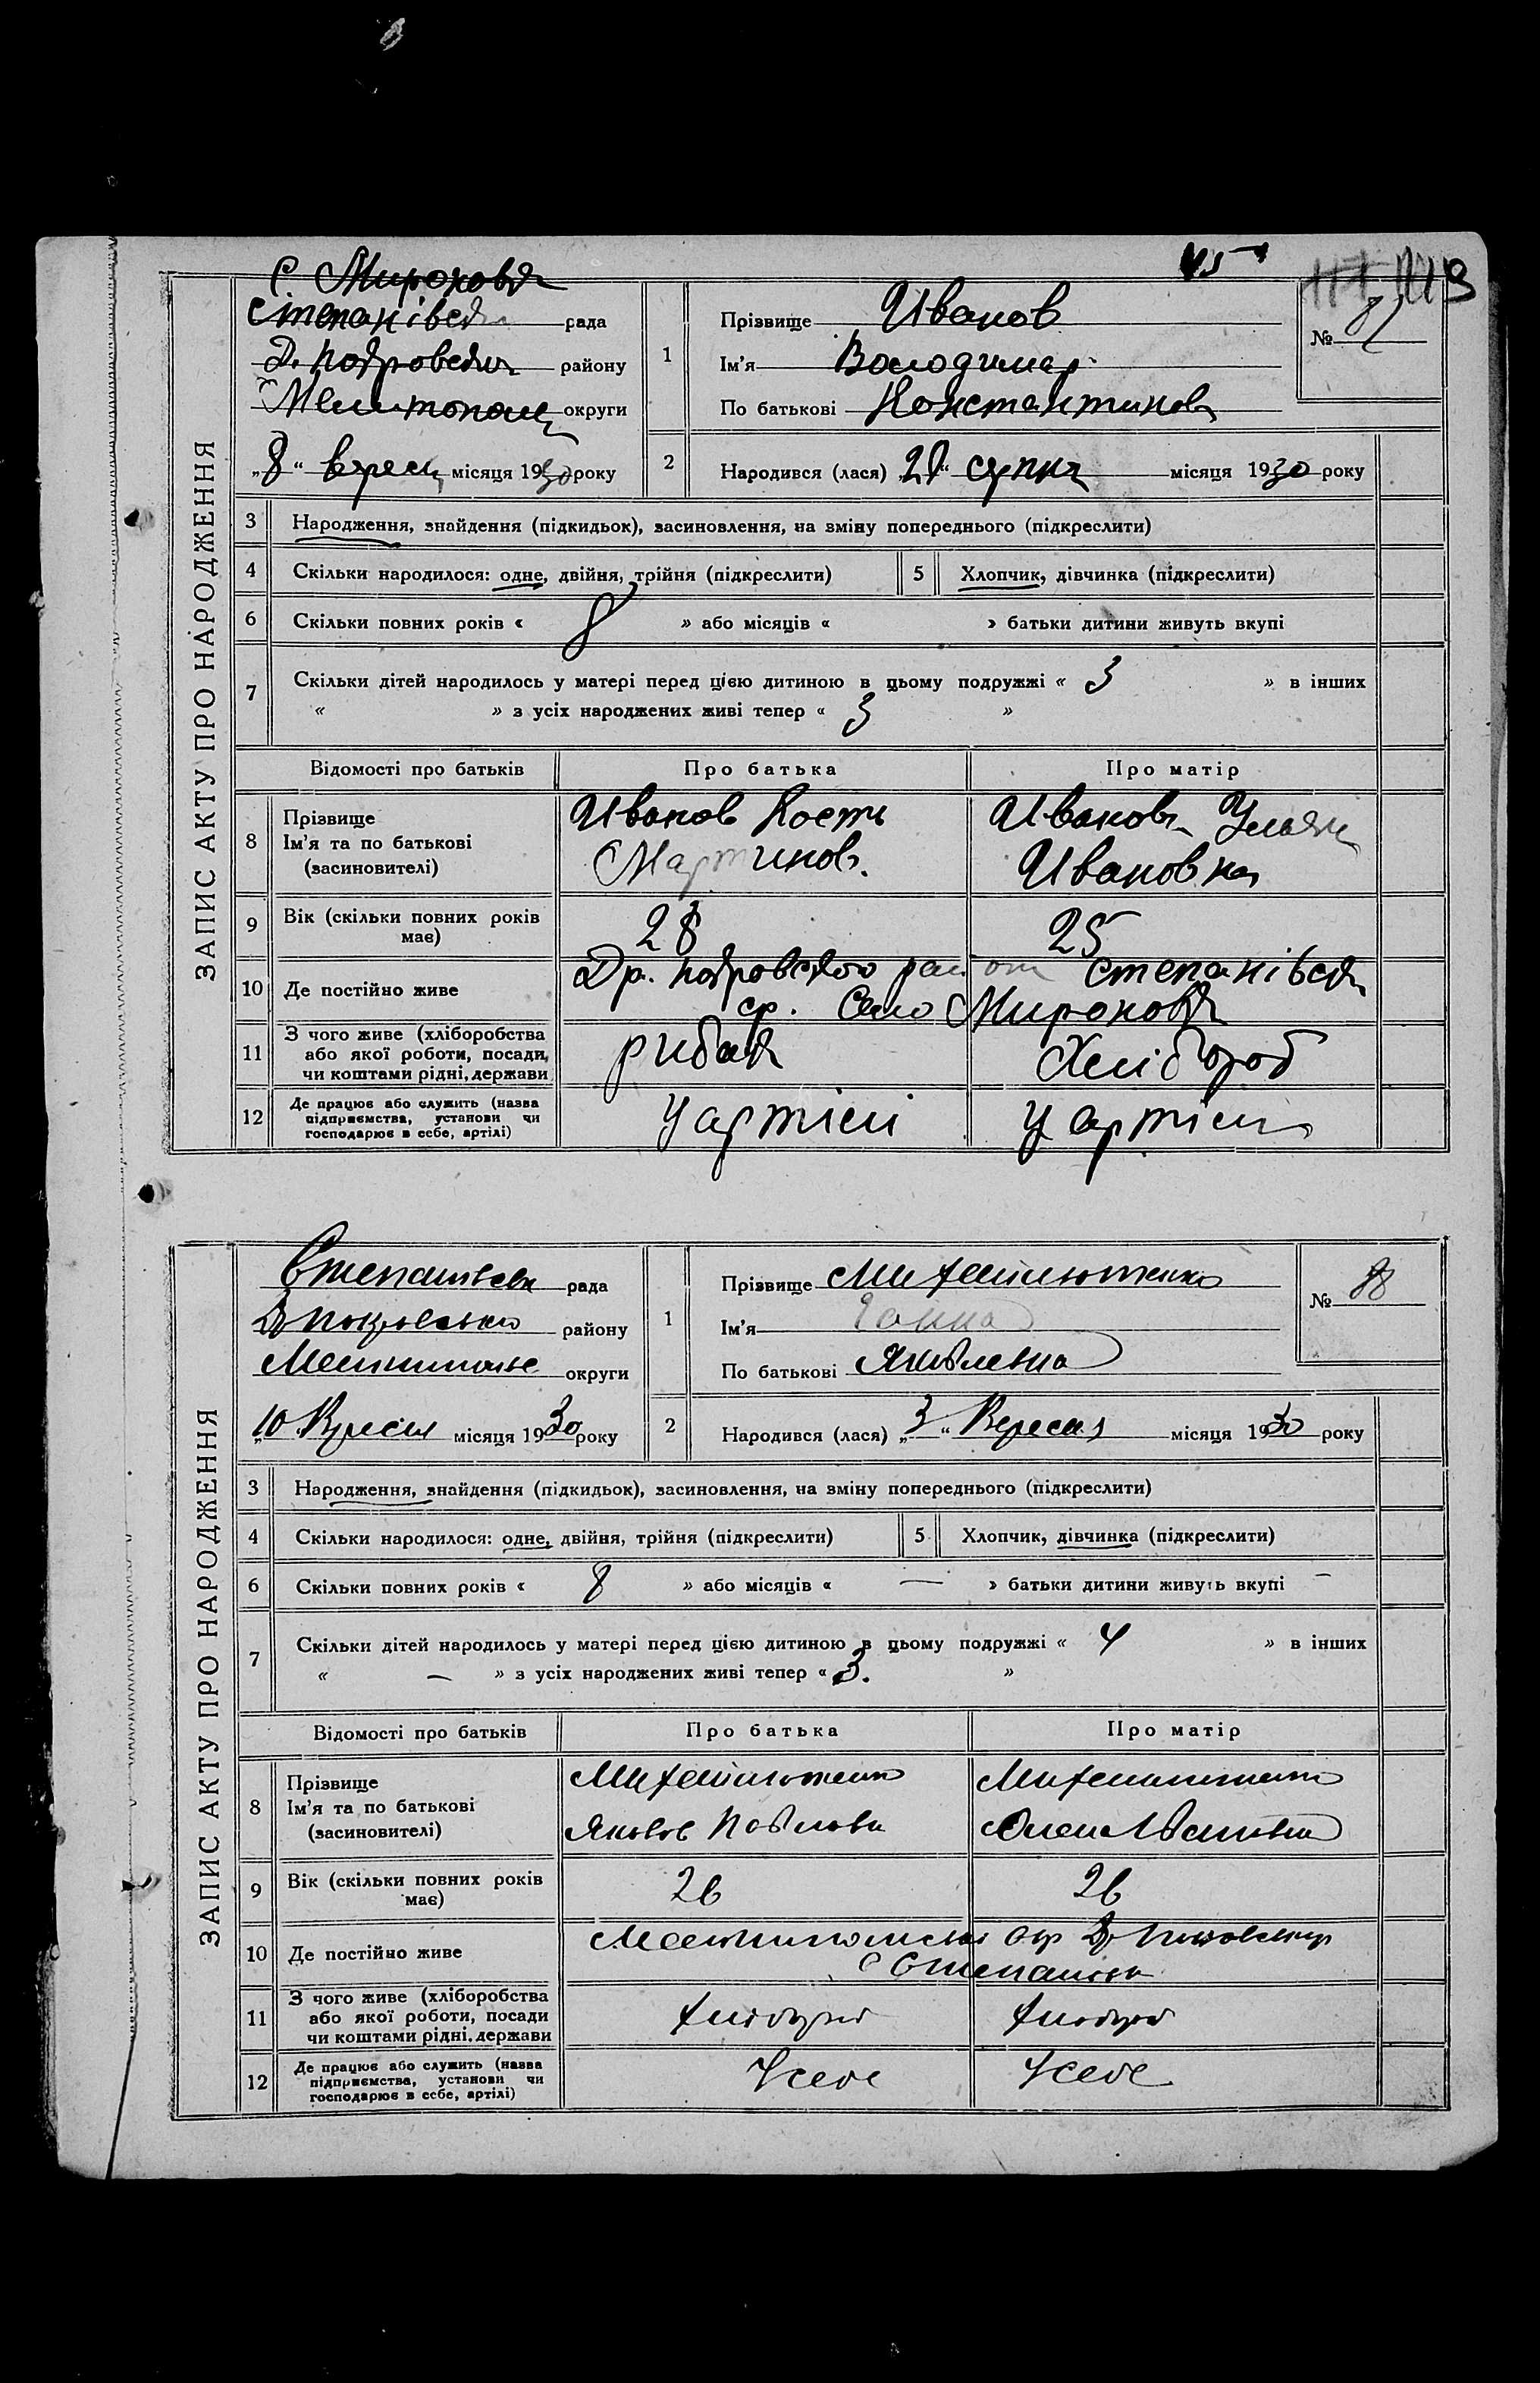 ЗАПИС АКТУ ПРО НАРОДЖЕННЯ
с. Мироновка
Степанівска рада
Д. покровська району
Мелитополь округи
„8“ вересн місяця 1930 року
1
Прізвище Иванов
Ім'я Володимар
По батькові Константинов
№ 87
2
Народився (лася) „ “ серпня місяця 1930 року
3 Народження, знайдення (підкидьок), засиновлення, на зміну попереднього (підкреслити)
4 Скільки народилося: одне, двійня, трійня (підкреслити)
5 Хлопчик, дівчинка (підкреслити)
6 Скільки повних років « 8 » або місяців « » батьки дитини живуть вкупі
7 Скільки дітей народилось у матері перед цією дитиною в цьому подружжі « 3 » в інших
« » з усіх народжених живі тепер « 3 »
Відомості про батьків Про батька Про матір
8 Прізвище
Ім'я та по батькові
(засиновителі)
Иванов Кость
Мартинов.
Иванова Уляна
Ивановна
9 Вік (скільки повних років має)
28
25
10 Де постійно живе
Др. покровского район степанівска
ср. Село Мироновка
11 З чого живе (хліборобства
або якої роботи, посади,
чи коштами рідні, держави
рибак
Хлібороб
12 Де працює або служить (назва
підприємства, установи чи
господарює в себе, артілі)
у артілі
у артілі
ЗАПИС АКТУ ПРО НАРОДЖЕННЯ
Степанівська рада
Д покровська району
Мелитопольс округи
„10 Вересня місяця 1930 року
1
Прізвище
Ім'я Ганна
По батькові Яковлевна
№ 88
2
Народився (лася) „3“ Вересня місяця 1930 року
3 Народження, знайдення (підкидьок), засиновлення, на зміну попереднього (підкреслити)
4 Скільки народилося: одне, двійня, трійня (підкреслити)
5 Хлопчик, дівчинка (підкреслити)
6 Скільки повних років « 8 » або місяців « — » батьки дитини живуть вкупі —
7 Скільки дітей народилось у матері перед цією дитиною в цьому подружжі « 4 » в інших
« — » з усіх народжених живі тепер « 3. »
Відомості про батьків Про батька Про матір
8 Прізвище
Ім'я та по батькові
(засиновителі)
Яковов Павлови
Олен Ивановна
9 Вік (скільки повних років має)
26
26
10 Де постійно живе
Мелитопольські окр Д Покровськ р
с Степанівка
11 З чого живе (хліборобства
або якої роботи, посади
чи коштами рідні, держави
хлібороб
хлібороб
12 Де працює або служить (назва
підприємства, установи чи
господарює в себе, артілі)
У себе
У себе